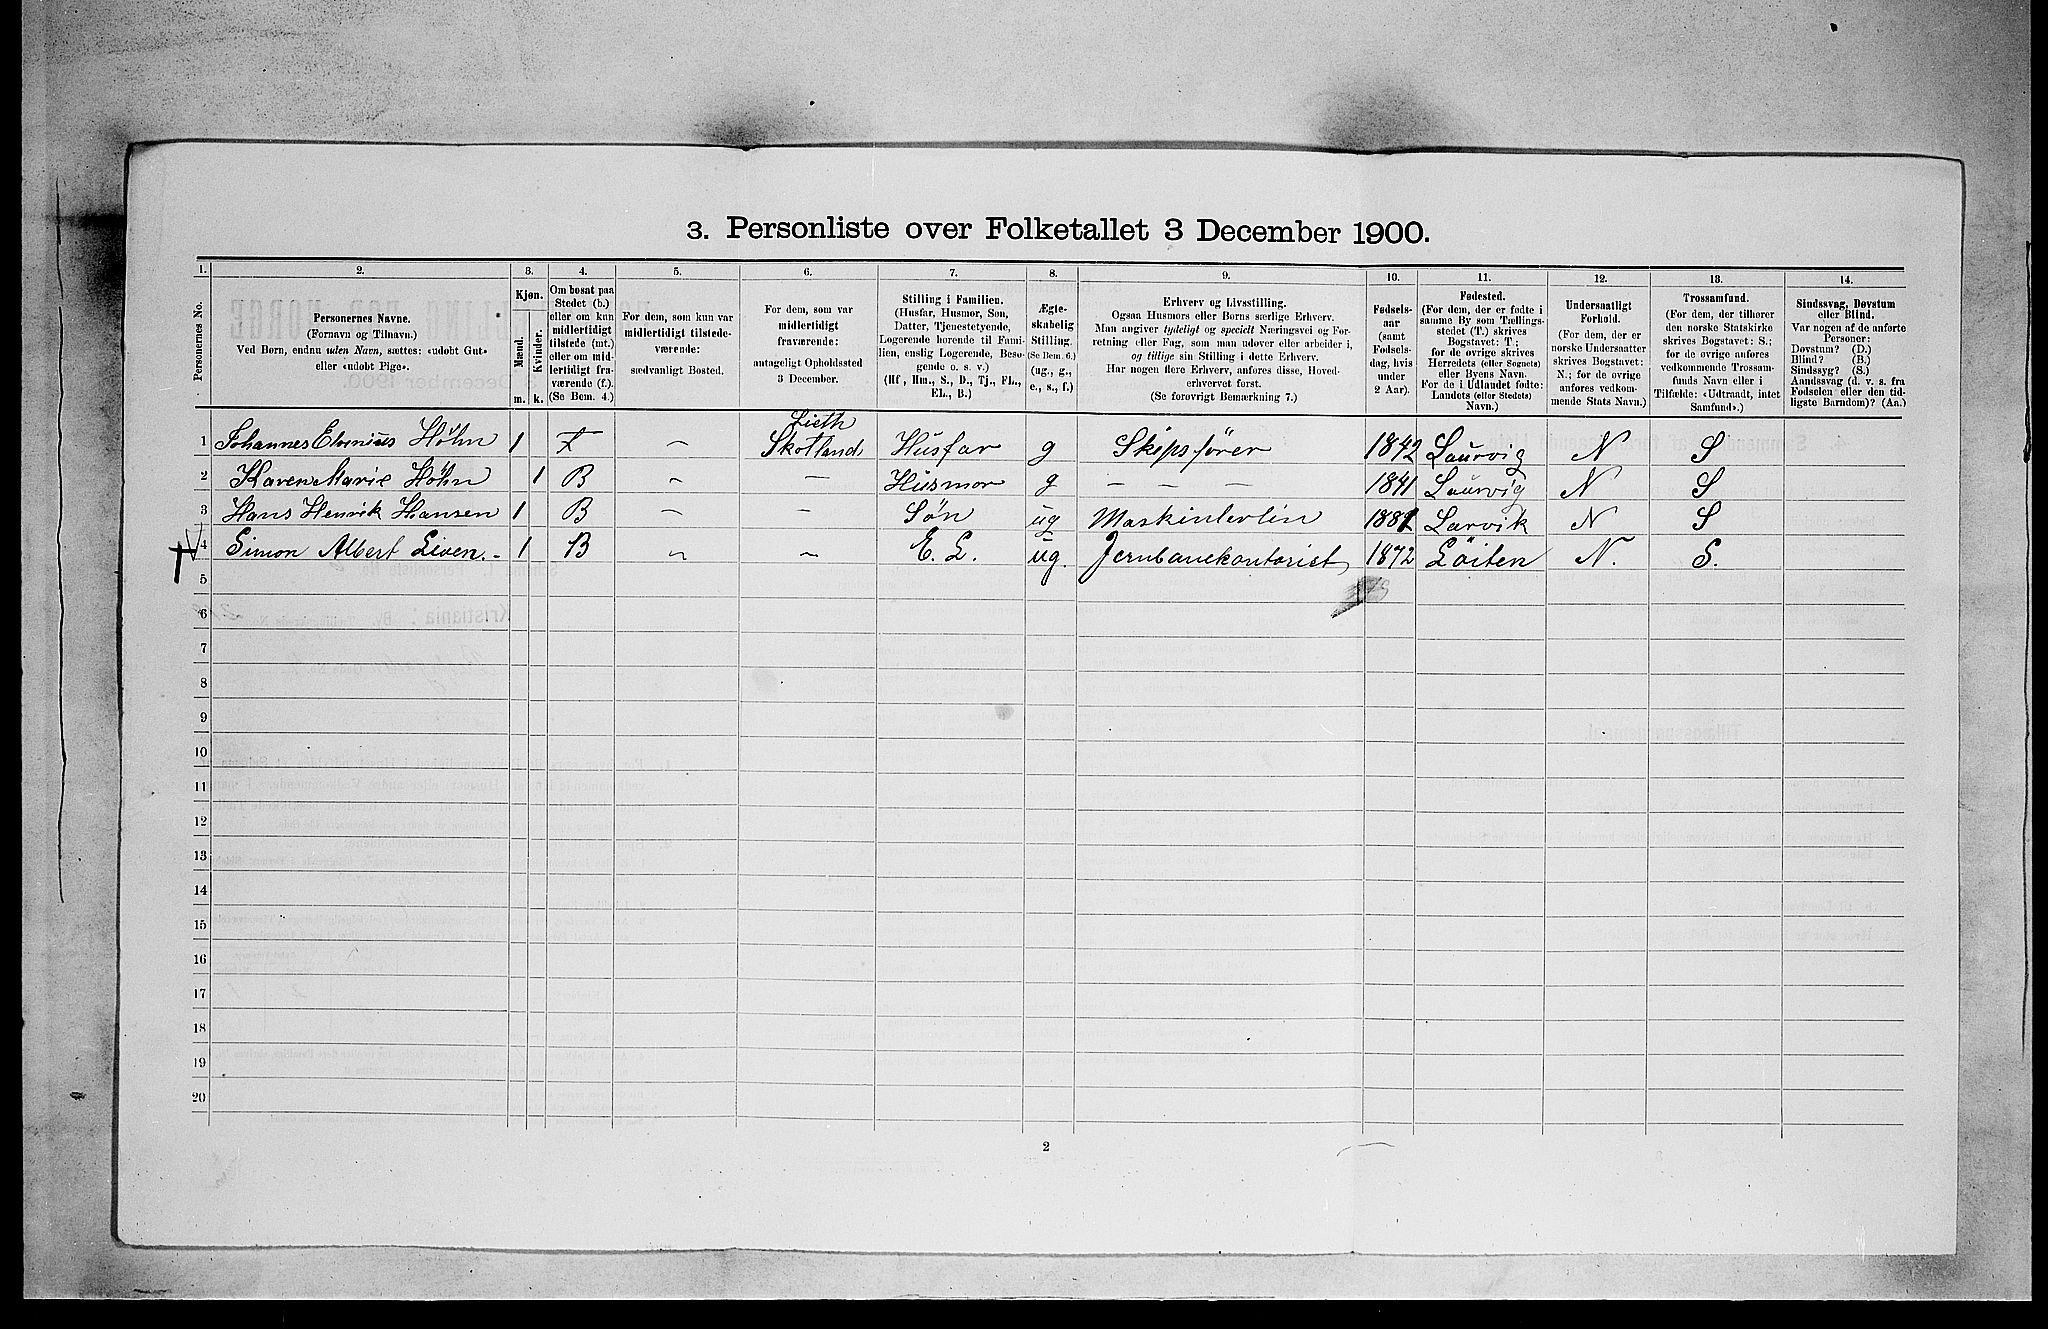 3. Personliste over Folketallet 3 December 1900.
1. 2. 3. 4. 5. 6. 7. 8. 9. 10. 11. 12. 13. 14.
Personernes No.
Personernes Navne.
(Fornavn og Tilnavn.)
Ved Børn, endnu uden Navn, sættes: «udøbt Gut»
eller «udøbt Pige».
Kjøn.
Mænd.
Kvinder.
m. k.
Om bosat paa
Stedet (b.)
eller om kun
midlertidigt
tilstede (mt.)
eller om mid-
lertidigt fra-
værende (f.).
(Se Bem. 4.)
For dem, som kun var
midlertidigt tilstede-
værende:
sædvanligt Bosted.
For dem, som var
midlertidigt
fraværende:
antageligt Opholdssted
3 December.
Stilling i Familien.
(Husfar, Husmor, Søn,
Datter, Tjenestetyende,
Logerende hørende til Fami-
lien, enslig Logerende, Besø-
gende o. s. v.)
(Hf, Hm., S., D., Tj., FL.,
EL., B.)
Ægte-
skabelig
Stilling.
(Se Bem. 6.)
(ug., g.,
e., s., f.)
Erhverv og Livsstilling.
Ogsaa Husmors eller Børns særlige Erhverv.
Man angiver tydeligt og specielt Næringsvei og For-
retning eller Fag, som man udøver eller arbeider i,
og tillige sin Stilling i dette Erhverv.
Har nogen flere Erhverv, anføres disse, Hoved-
erhvervet først.
(Se forøvrigt Bemærkning 7.)
Fødsels-
aar
(samt
Fødsels-
dag, hvis
under
2 Aar).
Fødested.
(For dem, der er fødte i
samme By som Tællings-
stedet (T.) skrives
Bogstavet: T;
for de øvrige skrives
Herredets (eller Sognets)
eller Byens Navn.
For de i Udlandet fødte:
Landets (eller Stedets)
Navn.)
Undersaatligt
Forhold.
(For dem, der er
norske Undersaatter
skrives Bogstavet:
N.; for de øvrige
anføres vedkom-
mende Stats Navn.)
Trossamfund.
(For dem, der tilhører
den norske Statskirke
skrives Bogstavet: S.;
for de øvrige anføres
vedkommende Trossam-
funds Navn eller i
Tilfælde: «Udtraadt, intet
Samfund».)
Sindssvag, Døvstum
eller Blind.
Var nogen af de anførte
Personer:
Døvstum? (D.)
Blind? (B.)
Sindssyg? (S.)
Aandssvag (d. v. s. fra
Fødselen eller den tid-
ligste Barndom)? (Aa.)
Lieth
1 Johannes Høhn 1 F – Skotland Husfar g Skipsfører 1842 Laurvig N S
2 Karen Marie Høhn 1 B – – Husmor g – – – 1841 Laurvig N S
3 Hans Henrik Hansen 1 B – – Søn ug 1881 Larvik N S
4 Simon Albert Liven. 1 B – – E. L. ug. Jernbanekontorist 1872 Löiten N. S.
5
6
7
8
9
10
11
12
13
14
15
16
17
18
19
20
2